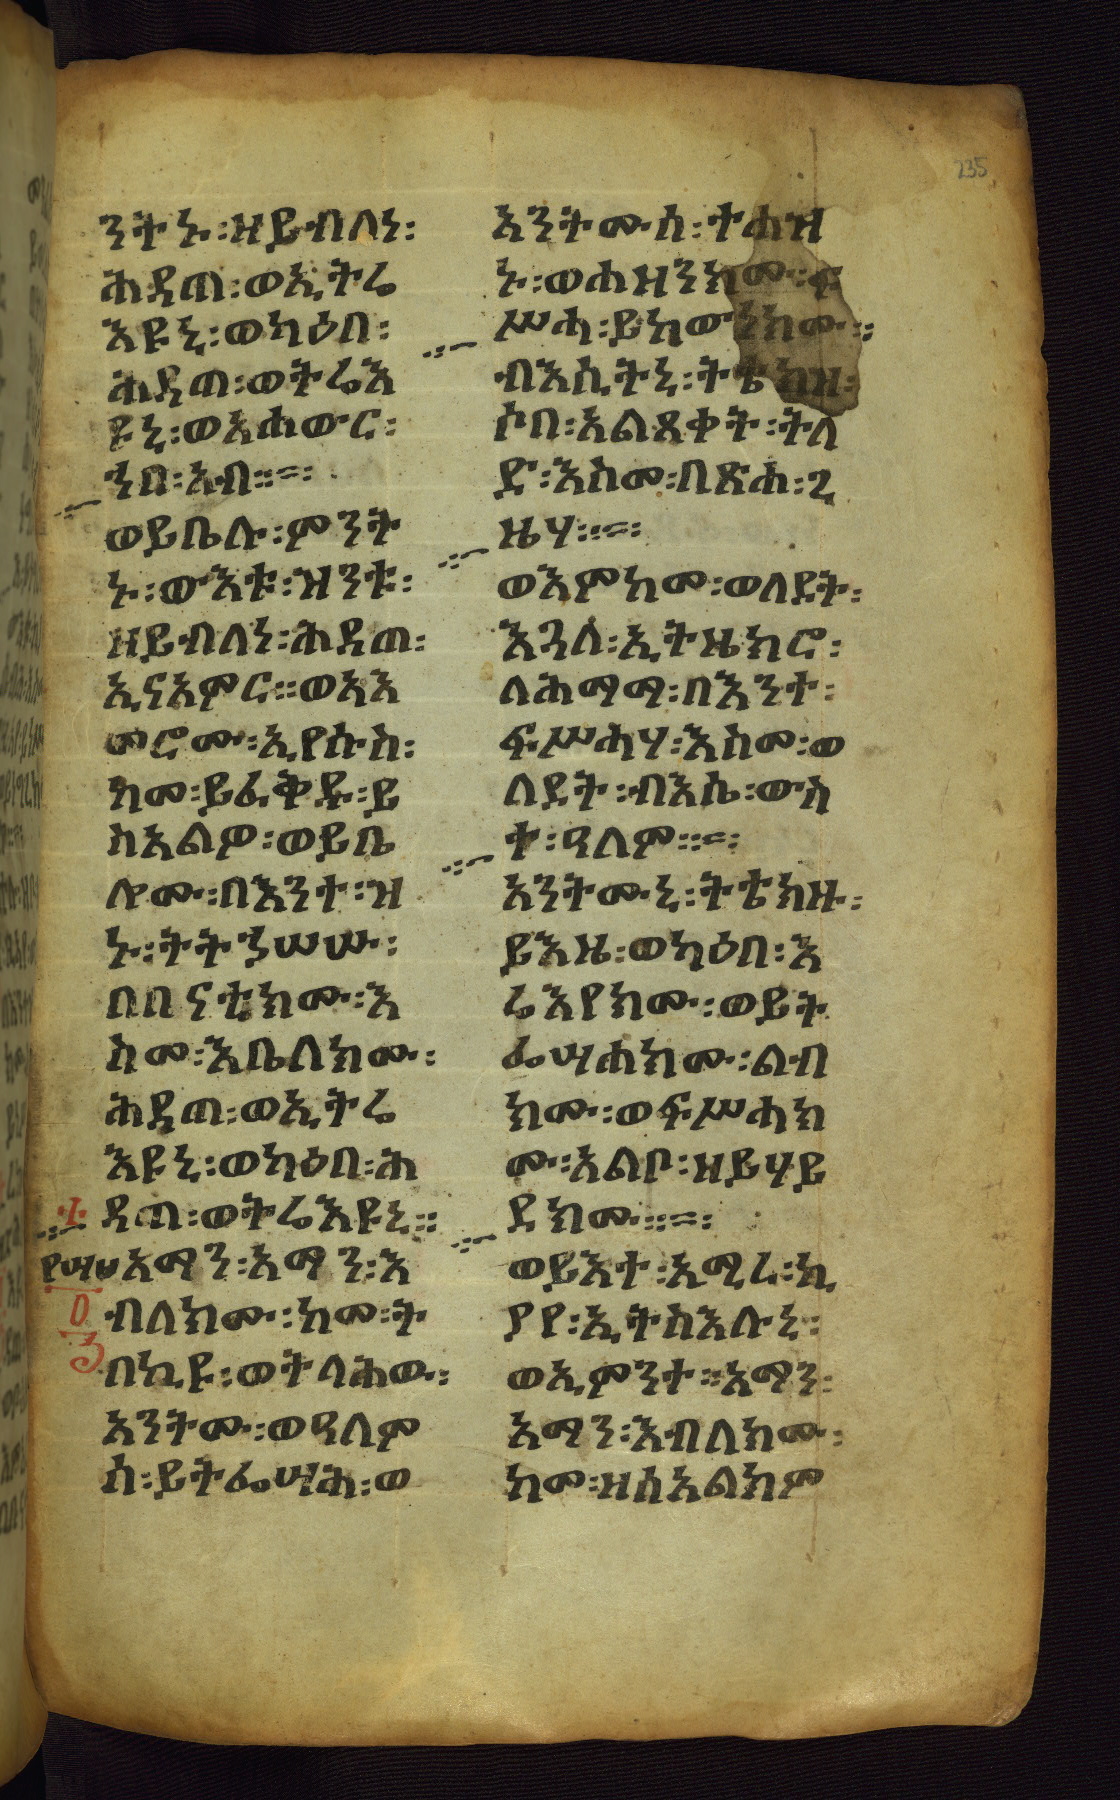 235
ንትኑ፡ዘይብለነ፡
ሕዳጠ፡ወኢትሬ
እዩኒ፡ወካዕበ፡
ሕዳጠ፡ወትሬእ
ዩኒ፡ወአሐውር፡
ኀበ፡አብ።
ወይቤሉ፡ምንት
ኑ፡ውእቱ፡ዝንቱ፡
ዘይብለነ፡ሕዳጠ፡
ኢናአምር።ወአእ
መሮሙ፡ኢየሱስ፡
ከመ፡ይፈቅዱ፡ይ
ስአልዎ፡ወይቤ
ሎሙ፡በእንተ፡ዝ
ኑ፡ትትኀሠሡ፡
በበናቲክሙ፡እ
ስመ፡እቤለክሙ፡
ሕዳጠ፡ወኢትሬ
እዩኒ፡ወካዕበ፡ሕ
ዳጠ፡ወትሬእዩኒ።
አማን፡አማን፡እ
ብለክሙ፡ከመ፡ት
በክዩ፡ወትላሕዉ፡
አንትሙ፡ወዓለም
ሰ፡ይትፌሣሕ፡ወ
አንትሙሰ፡ተሐዝ
ኑ፡ወሐዘንክሙ፡ፍ
ሥሓ፡ይከውነክሙ።
ብእሲትኒ፡ትቴክዝ፡
ሶበ፡አልጸቀት፡ትለ
ድ፡እስመ፡በጽሐ፡ጊ
ዜሃ።
ወእምከመ፡ወለደት፡
እጓለ፡ኢትዜክሮ፡
ለሕማማ፡በእንተ፡
ፍሥሓሃ፡እስመ፡ወ
ለደት፡ብእሴ፡ውስ
ተ፡ዓለም።
አንትሙኒ፡ትቴክዙ፡
ይእዜ፡ወካዕበ፡እ
ሬእየክሙ፡ወይት
ፌሣሐክሙ፡ልብ
ክሙ፡ወፍሥሓክ
ሙ፡አልቦ፡ዘይሃይ
ደክሙ።
ወይእተ፡አሚረ፡ኪ
ያየ፡ኢትስእሉኒ፡
ወኢምንተ።አማን፡
አማን፡እብለክሙ፡
ከመ፡ዘሰአልክም